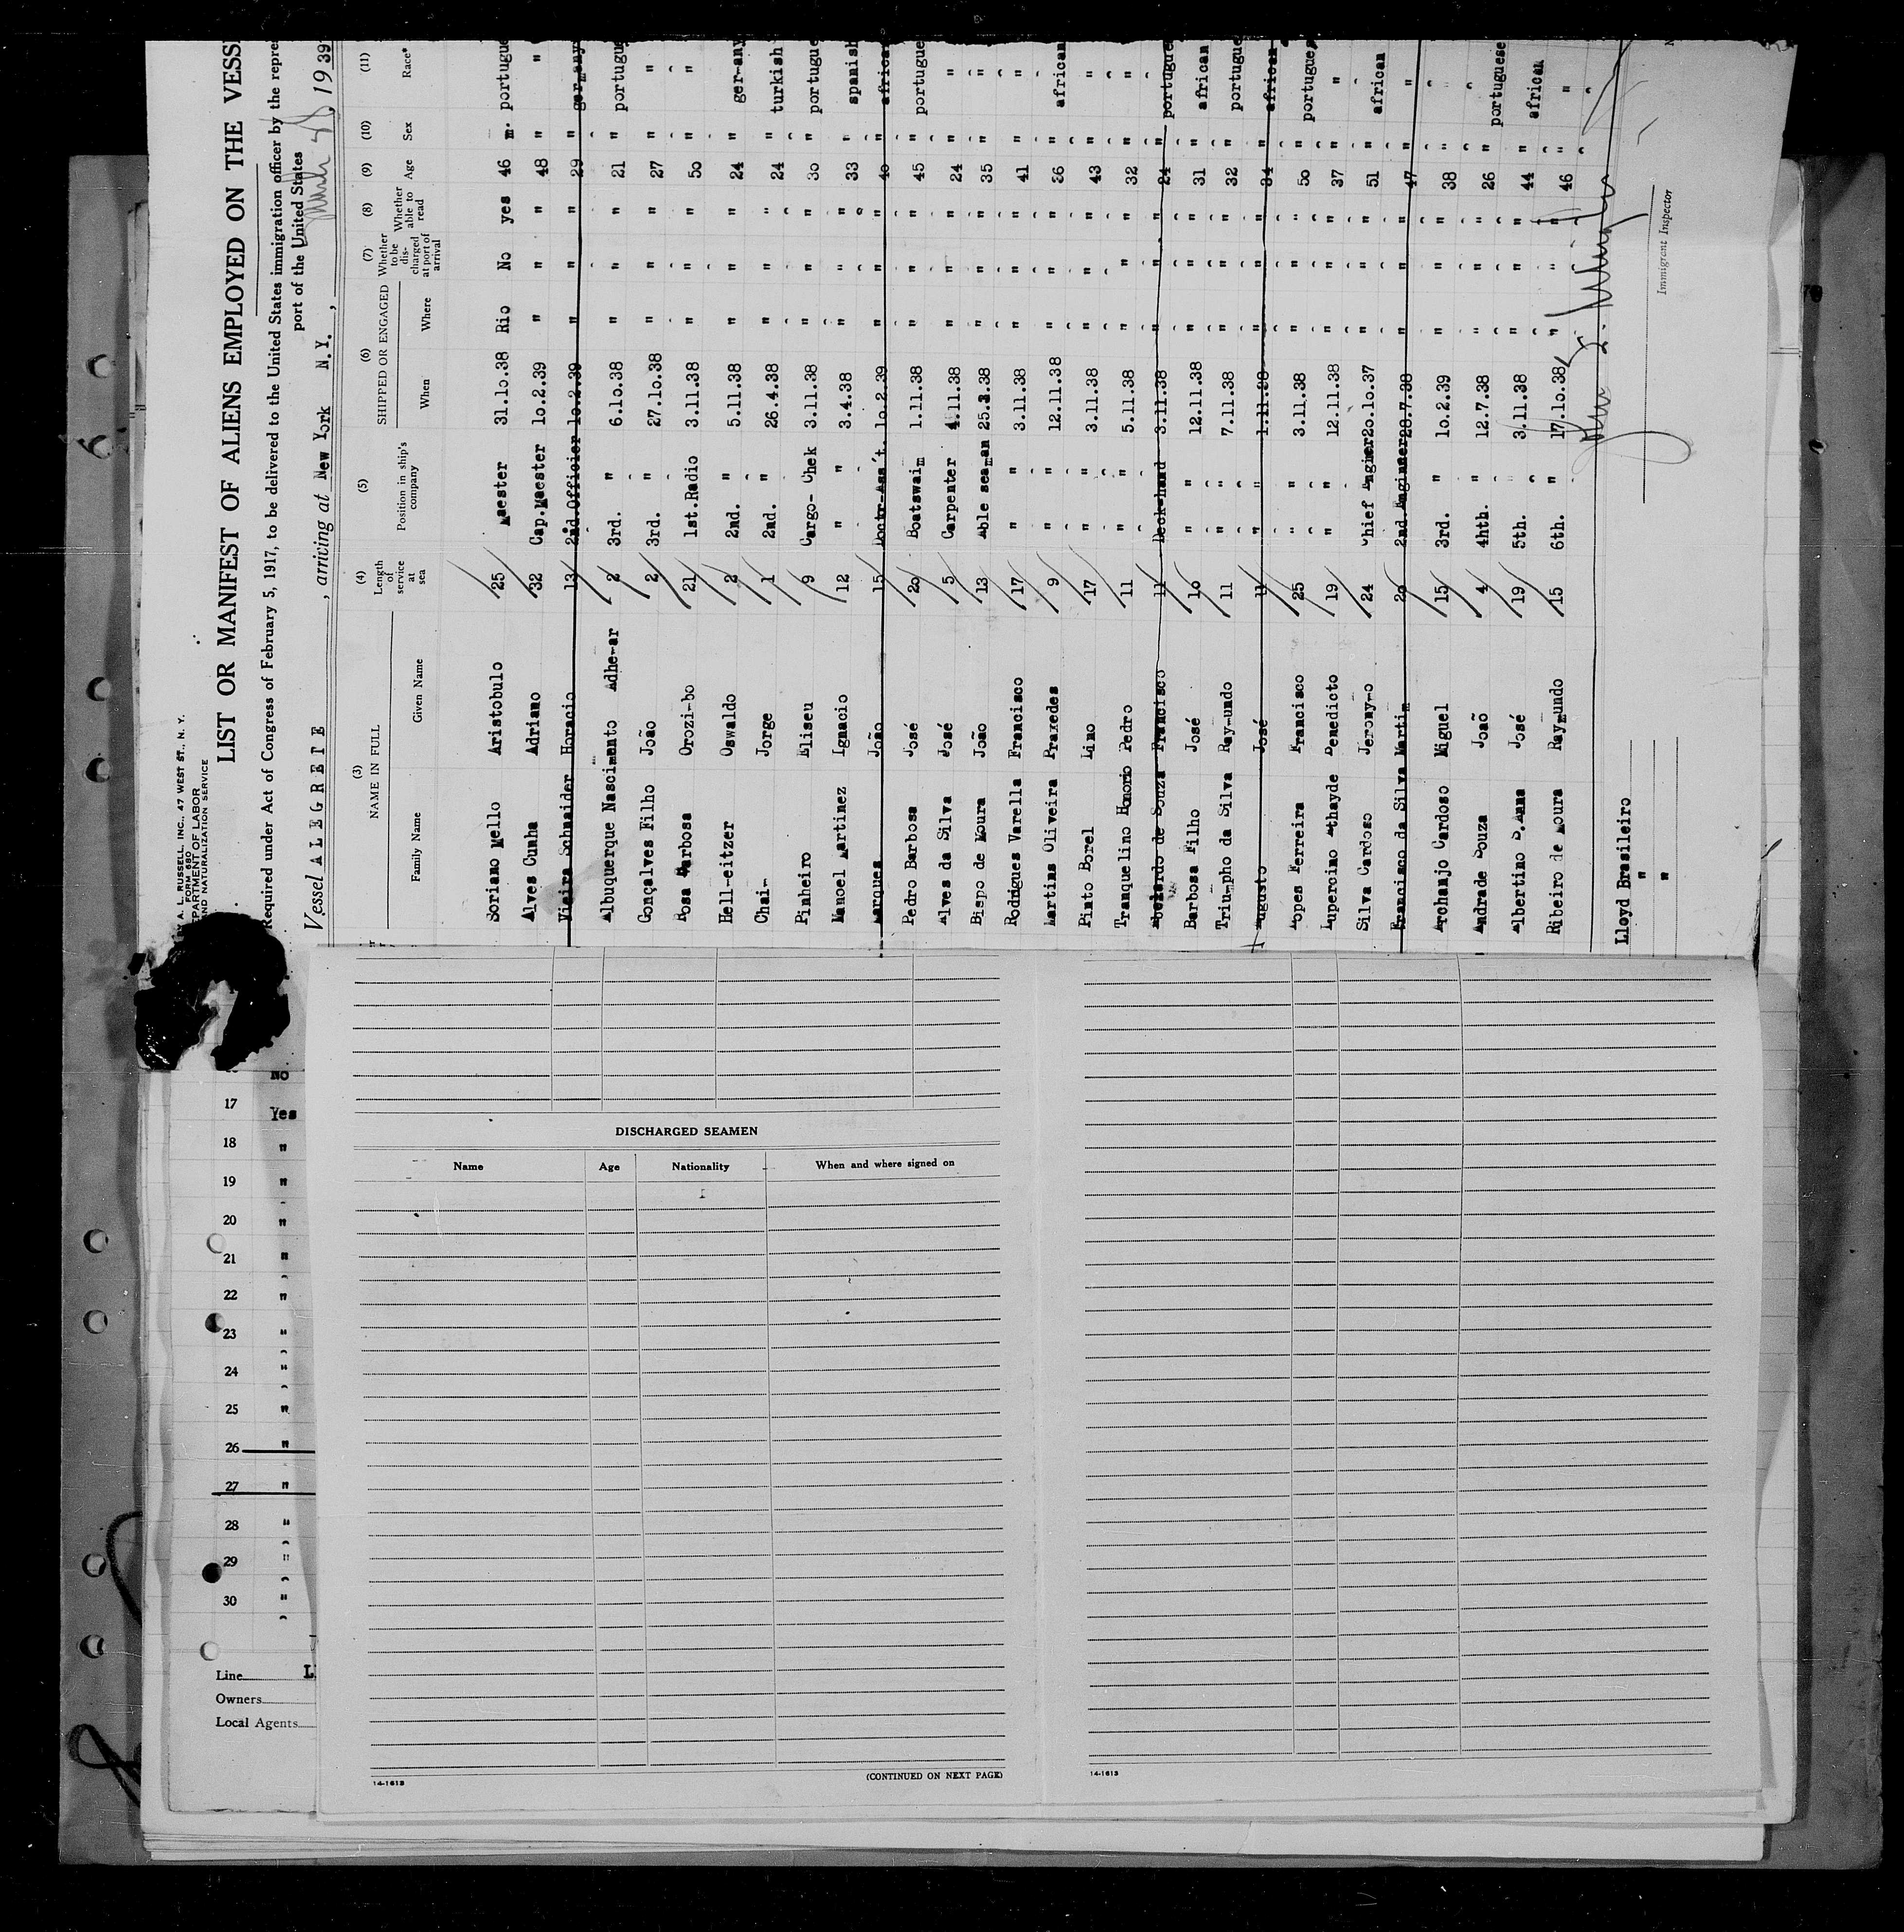 BY A. L. RUSSELL, INC., 47 WEST ST., N. Y.
FORM 680
DEPARTMENT OF LABOR
AND NATURALIZATION SERVICE
LIST OR MANIFEST OF ALIENS EMPLOYED ON THE VESS
Required under Act of Congress of February 5, 1917, to be delivered to the United States immigration officer by the repre
port of the United States
Vessel ALEGRETE, arriving at New York N.Y., 1939
(3) (4) (5) (6) (7) (8) (9) (10) (11)
NAME IN FULL Length of service at sea Position in ship's company SHIPPED OR ENGAGED Whether to be discharged at port of arrival Whether able to read Age Sex Race*
Family Name Given Name When Where
Soriano Mello Aristobulo 25 Maester 31.10.38 Rio No yes 46 m. portugue
Alves Cunha Adriano 32 Cap.Maester 10.2.39 " " " 48 " "
Vieira Schnaider Horacio 13 2nd.Officier 10.2.39 " " " 29 " germany
Albuquerque Nascimento Adhe-ar 2 3rd. " 6.10.38 " " " 21 " portugue
Gonçalves Filho João 2 3rd. " 27.10.38 " " " 27 " "
Rosa Barbosa Orozi-bo 21 1st.Radio 3.11.38 " " " 50 " "
Hell-eitzer Oswaldo 2 2nd. " 5.11.38 " " " 24 " ger-any
Chai- Jorge 1 2nd. " 26.4.38 " " " 24 " turkish
Pinheiro Eliseu 9 Cargo- Chek 3.11.38 " " " 30 " portugue
Manoel Martinez Ignacio 12 " " 3.4.38 " " " 33 " spanish
Marques João 15 Doctr-Ass't. 10.2.39 " " " 40 " african
Pedro Barbosa José 20 Boatswaim 1.11.38 " " " 45 " portugue
Alves da Silva José 5 Carpenter 4.11.38 " " " 24 " "
Bispo de Moura João 13 Able seaman 25.3.38 " " " 35 " "
Rodrigues Varella Francisco 17 " " 3.11.38 " " " 41 " "
Martins Oliveira Praxedes 9 " " 12.11.38 " " " 36 " african
Pinto Borel Lino 17 " " 3.11.38 " " " 43 " "
Tranquelino Honorio Pedro 11 " " 5.11.38 " " " 32 " "
Abelardo de Souza Francisco 11 Deck-hand 3.11.38 " " " 24 " portugue
Barbosa Filho José 10 " " 12.11.38 " " " 31 " african
Triu-pho da Silva Ray-undo 11 " " 7.11.38 " " " 32 " portugue
Augusto José 11 " " 1.11.38 " " " 34 " african
Lopes Ferreira Francisco 25 " " 3.11.38 " " " 50 " portugues
Lupercino Athayde Benedicto 19 " " 12.11.38 " " " 37 " "
Silva Cardoso Jerony-o 24 Chief Enginer 20.10.37 " " " 51 " african
Francisco da Silva Martim 20 2nd. Enginner 28.7.38 " " " 47 " "
Archanjo Cardoso Miguel 15 3rd. " 10.2.39 " " " 38 " "
Andrade Souza João 4 4hth. " 12.7.38 " " " 26 " portuguese
Albertino D.Anna José 19 5th. " 3.11.38 " " " 44 " african
Ribeiro de Moura Raymundo 15 6th. " 17.10.38 " " " 46 " "
Lloyd Brasileiro
"
"
Immigrant Inspector
No
17 Yes
18 "
19 "
20 "
21 "
22 "
23 "
24 "
25 "
26 "
27 "
28 "
29 "
30 "
Line
Owners
Local Agents
DISCHARGED SEAMEN
Name Age Nationality When and where signed on
14-1613
(CONTINUED ON NEXT PAGE)
14-1613